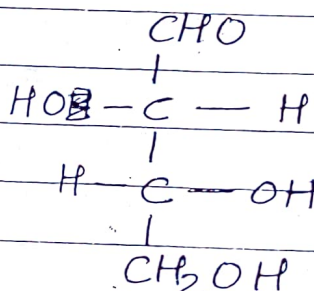 CHO
HO - C - H
H - C - OH
CH2OH